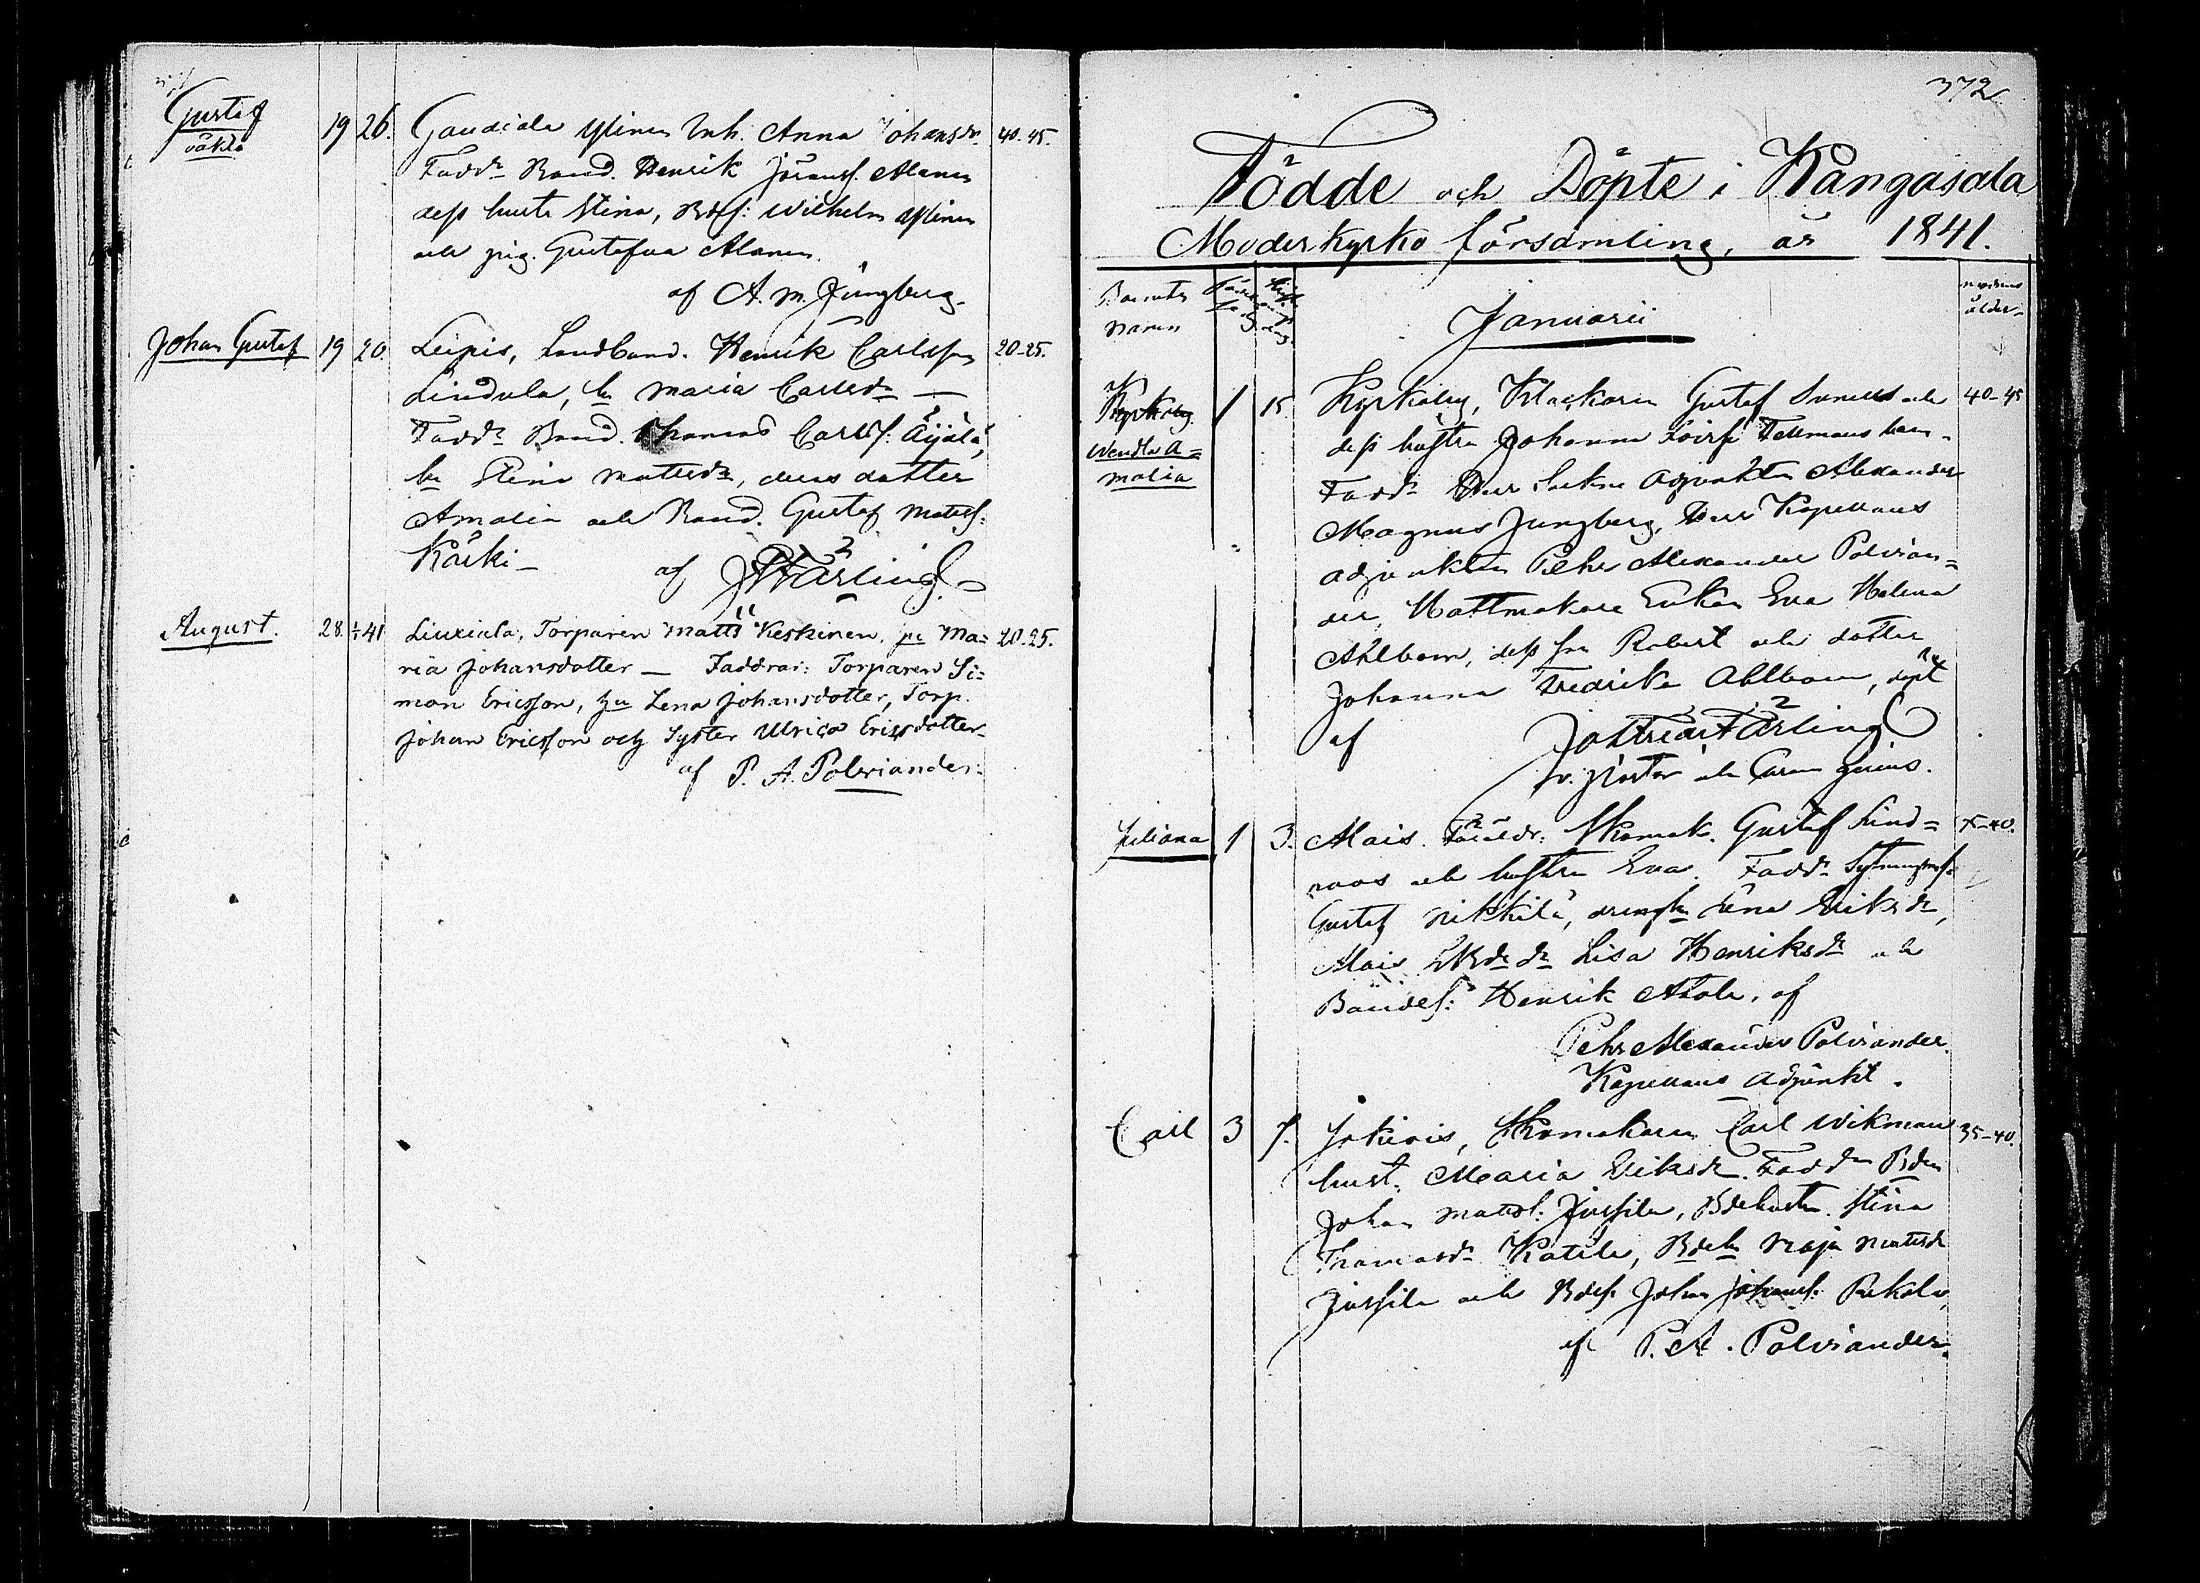 Gustaf
oäkta
19 26. Gaudiala Ylinen Inh. Anna Johansdr. 40-45.
Faddr Bond. Henrik Jöranss. Alanen
dess hustr Stina, Bdss: Wilhelm Ylinen
och pig. Gustafva Alanen.
af A. M. Jungberg.
Johan Gustaf 19 20. Leipis, Landbond. Henrik Carlsson 20-25.
Lindula, hu Maria Carlsdr —
Faddr Bond. Thomas Carlss: Äijälä,
hu Stina Mattsdr, deras dotter
Amalia och Bond. Gustaf Mattss:
Kärki — af Färling.
August. 28. 1/1 41 Liuxiala, Torparen Matts Keskinen, hu Ma= 20-25.
ria Johansdotter — Faddrar: Torparen Si=
mon Ericsson, hu Lena Johansdotter, Torp.
Johan Ericsson och Syster Ulrica Ericsdotter
af P. A. Polviander.
372.
Födde och Döpte i Kangasala
Moderkyrko församling, år 1841.
Barnets
namn
Januarii
modrens
ålder
Kyrkoby 1 15. Kyrkoby, Klockaren Gustaf och 40-45
Wendla A=
malia
dess hustru Johanna
Faddr Herr Sockne Adjunkten Alexander
Magnus Jungberg, Herr Kapellans
adjunkten Pehr Alexander Polvian=
der, Hattmakare Enkan Eva Helena
Ahlbom, dess son Robert och dotter
Johanna Fredrika Ahlbom, döpt
af Joh Fredr Färling
v. Pastor och
Juliana 1 3. Alais. Föräldr: Skomak. Gustaf Lind= -40.
roos och hustru Eva. Faddr
Gustaf Nikkilä, Lena Eriksdr,
Alais Lisa Henriksdr och
Bondes: Henrik Ahola, af
Pehr Alexander Polviander
Kapellans Adjunkt.
Carl 3 7. Jokiois, Skomakaren Carl Wikman 35-40.
hust: Maria Eriksdr. Faddr Bden
Johan Mattss: Jussila, Bdehustru Stina
Thomasdr Katila, Bdehu Maja Mattsdr
Jussila och Bdess Johan Johanss: Pekola,
af P. A. Polviander.